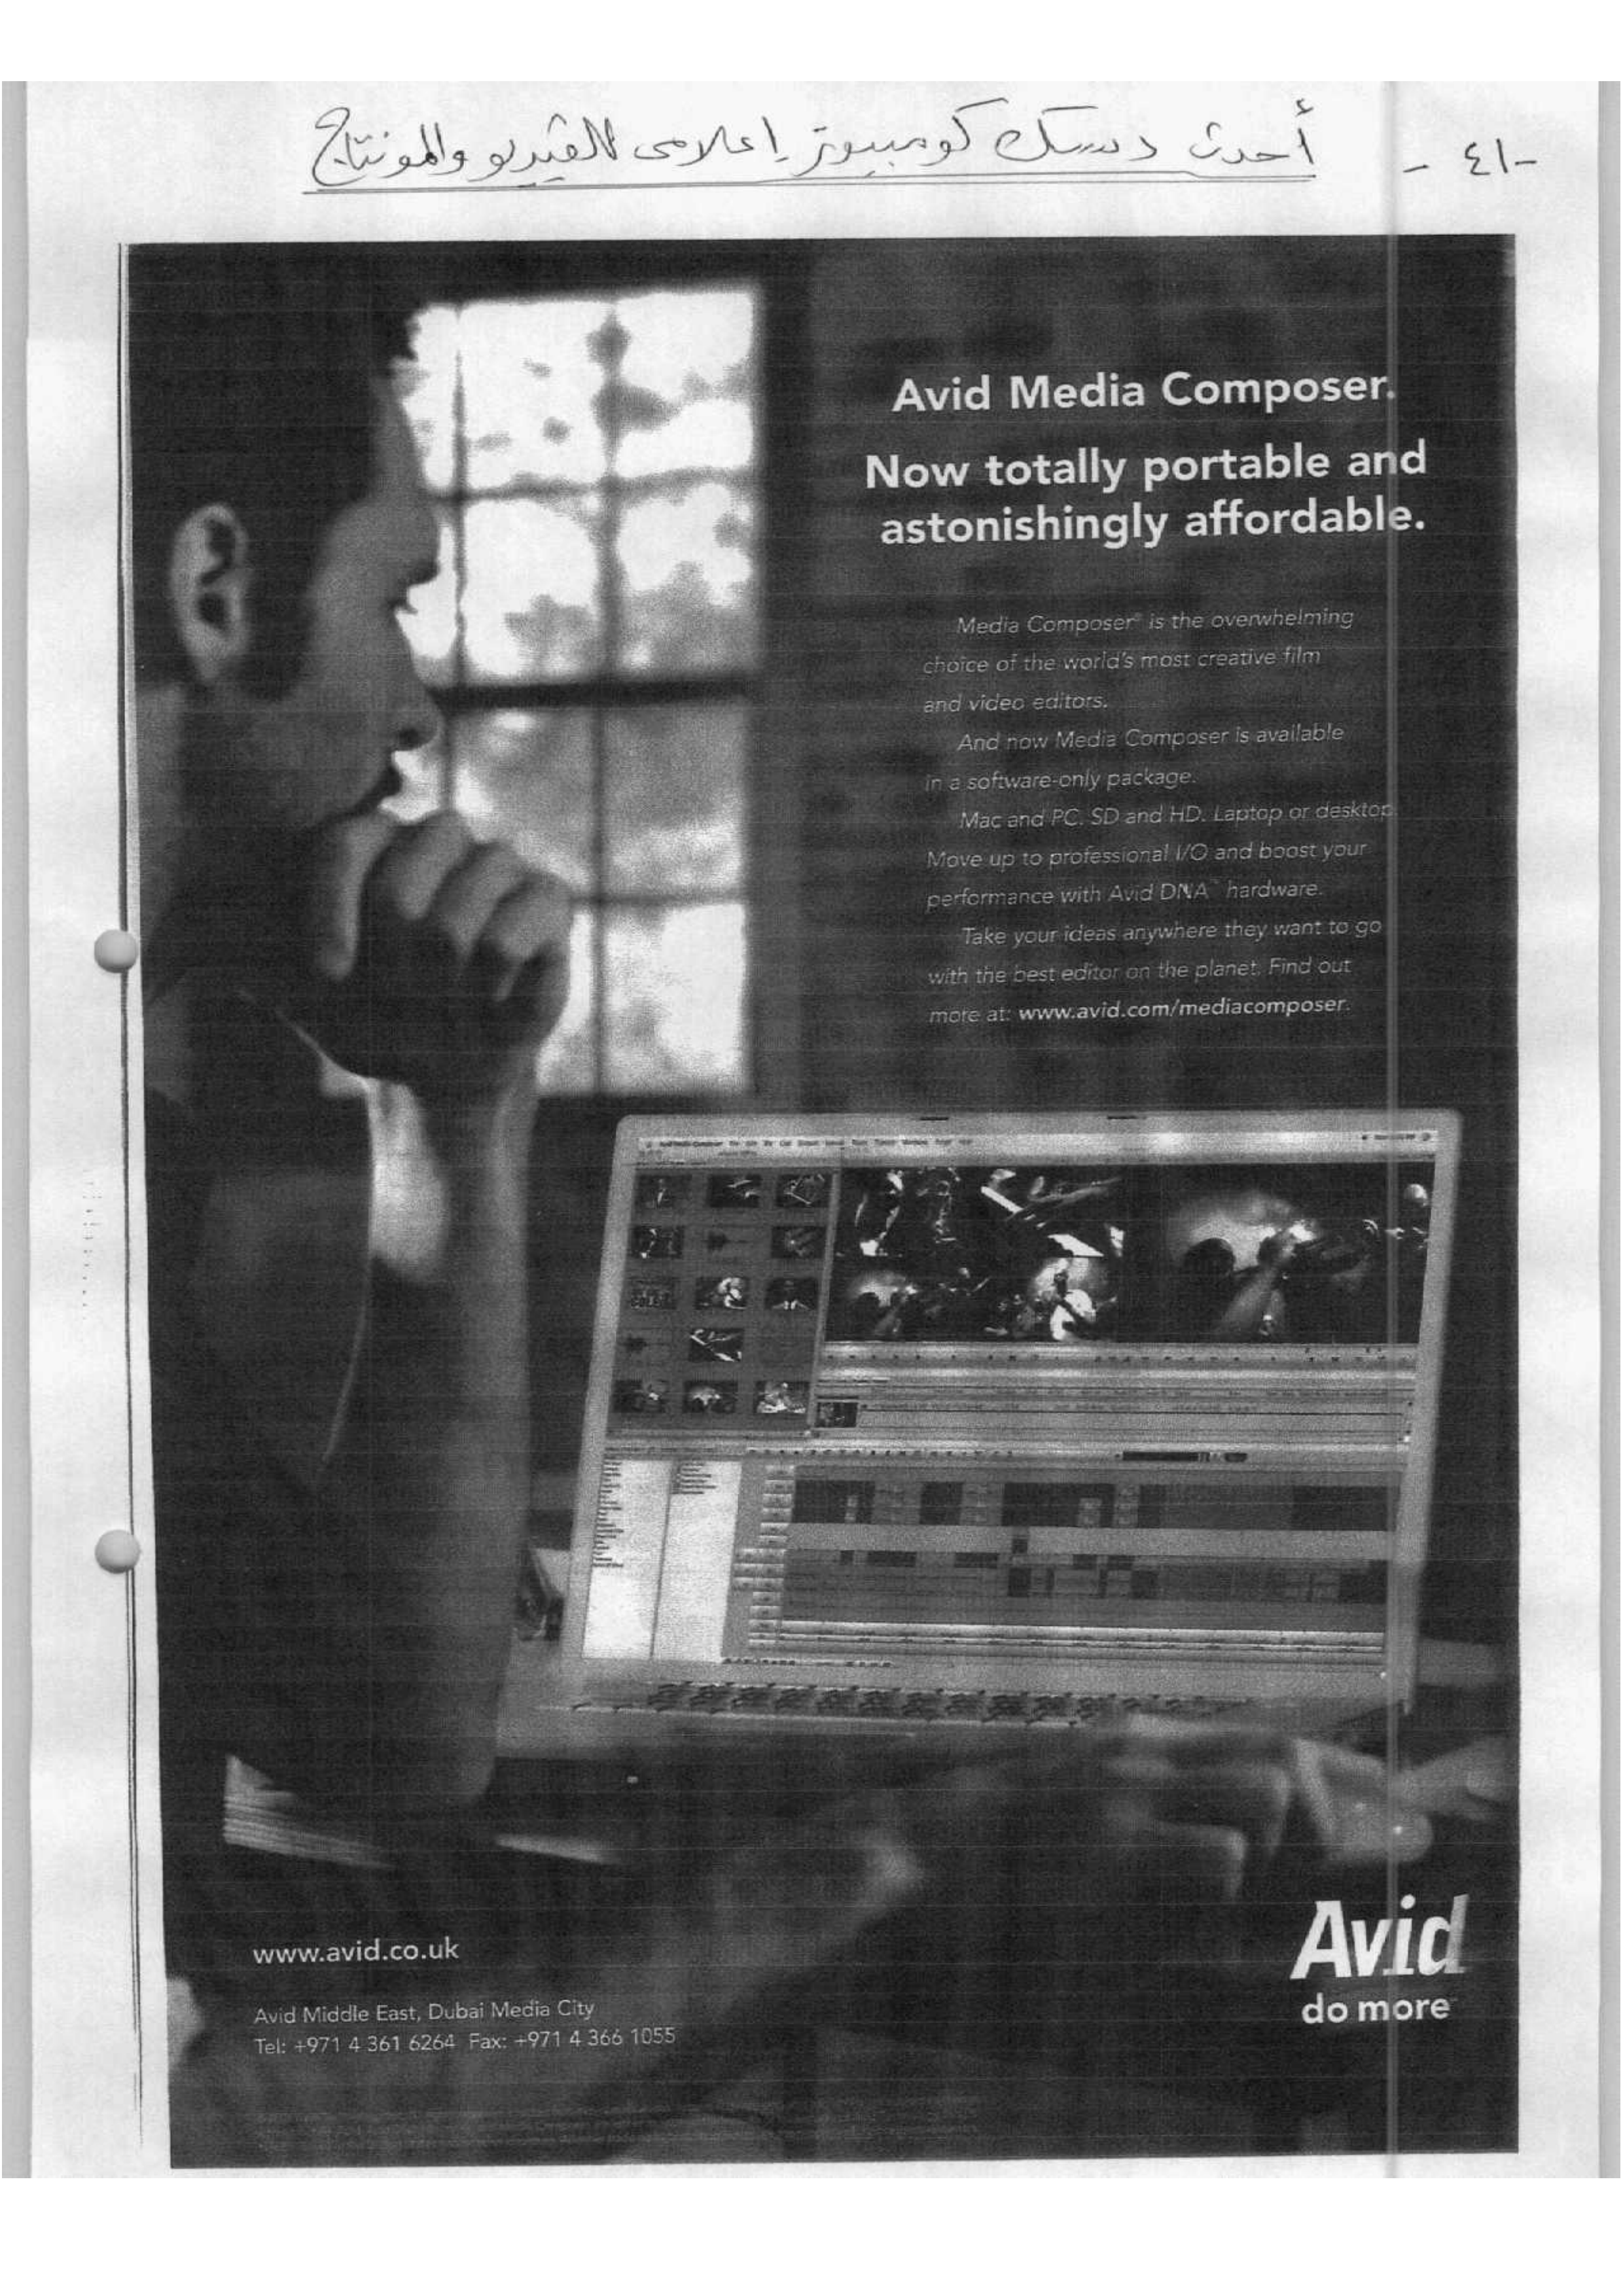 -٤١-
أحدث دسك كومبيوتر إعلامى للفيديو والمونتاج
Avid Media Composer.
Now totally portable and
astonishingly affordable.
Media Composer® is the overwhelming
choice of the world's most creative film
and video editors.
And now Media Composer is available
in a software-only package.
Mac and PC. SD and HD. Laptop or desktop.
Move up to professional I/O and boost your
performance with Avid DNA™ hardware.
Take your ideas anywhere they want to go
with the best editor on the planet. Find out
more at: www.avid.com/mediacomposer.
www.avid.co.uk
Avid Middle East, Dubai Media City
Tel: +971 4 361 6264 Fax: +971 4 366 1055
Avid
do more™